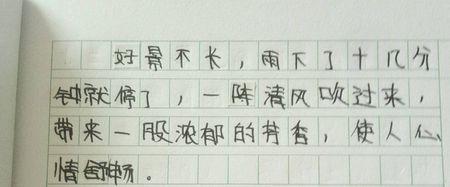 好景不长，雨下了十几分
钟就停了，一阵清风吹过来，
带来一股浓郁的芳香，使人心
情舒畅。